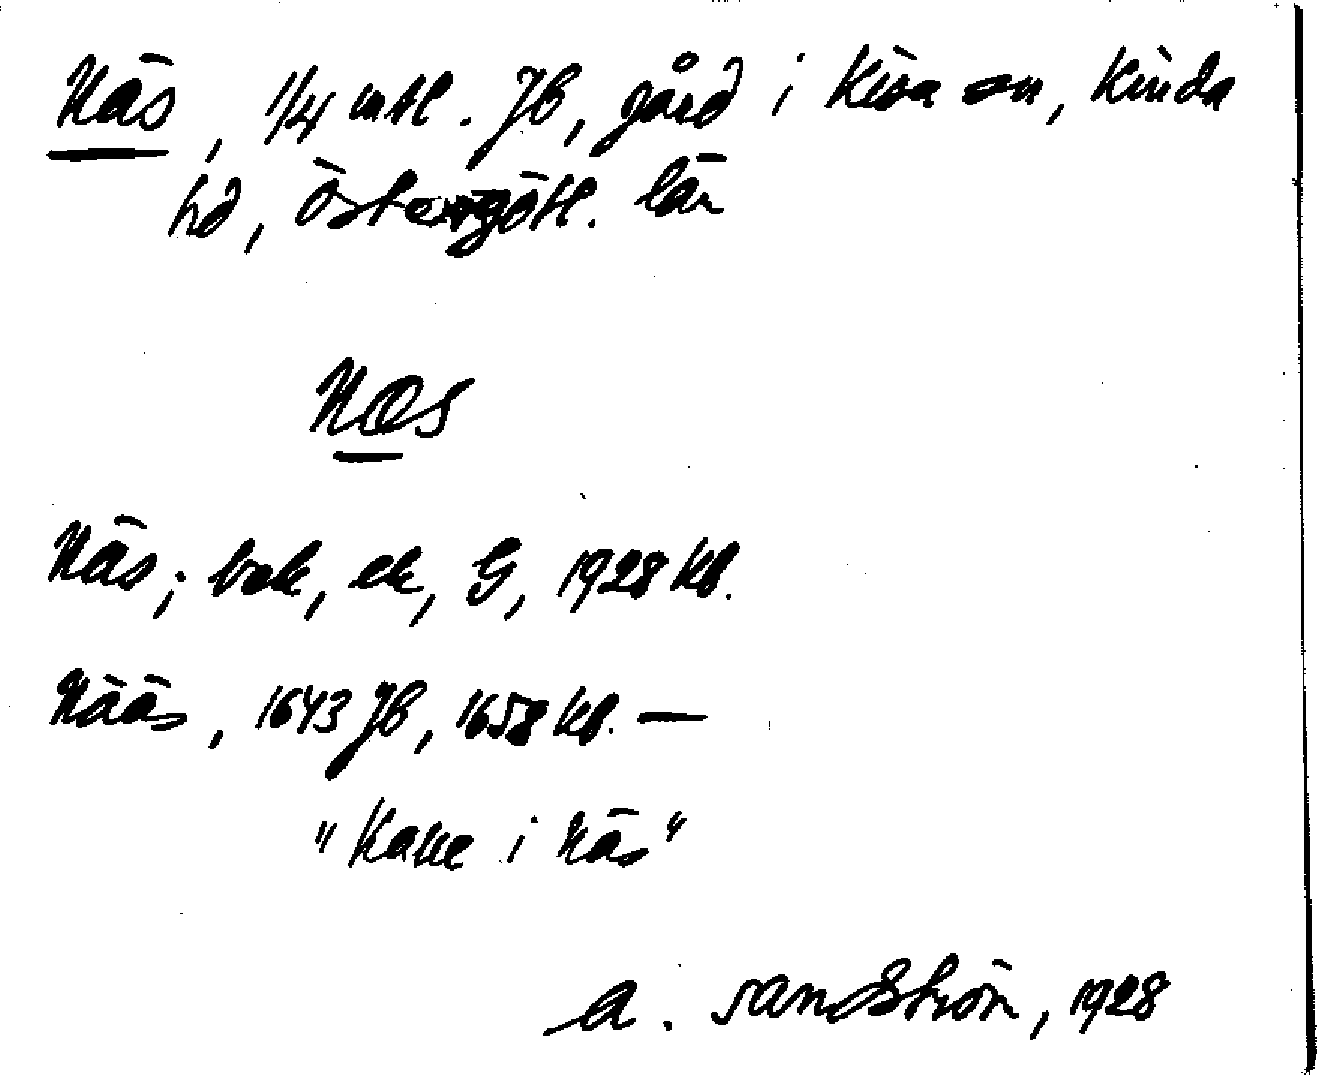 Näs, 1/4 mtl. JB, gård i Kisa sn, Kinda
hd, Östergötl. län
næs
Näs; bok, ek, G, 1928 Kb.
Nääs, 1643 JB, 1658 Kb. —
"Kalle i Näs"
A. Sandström, 1928